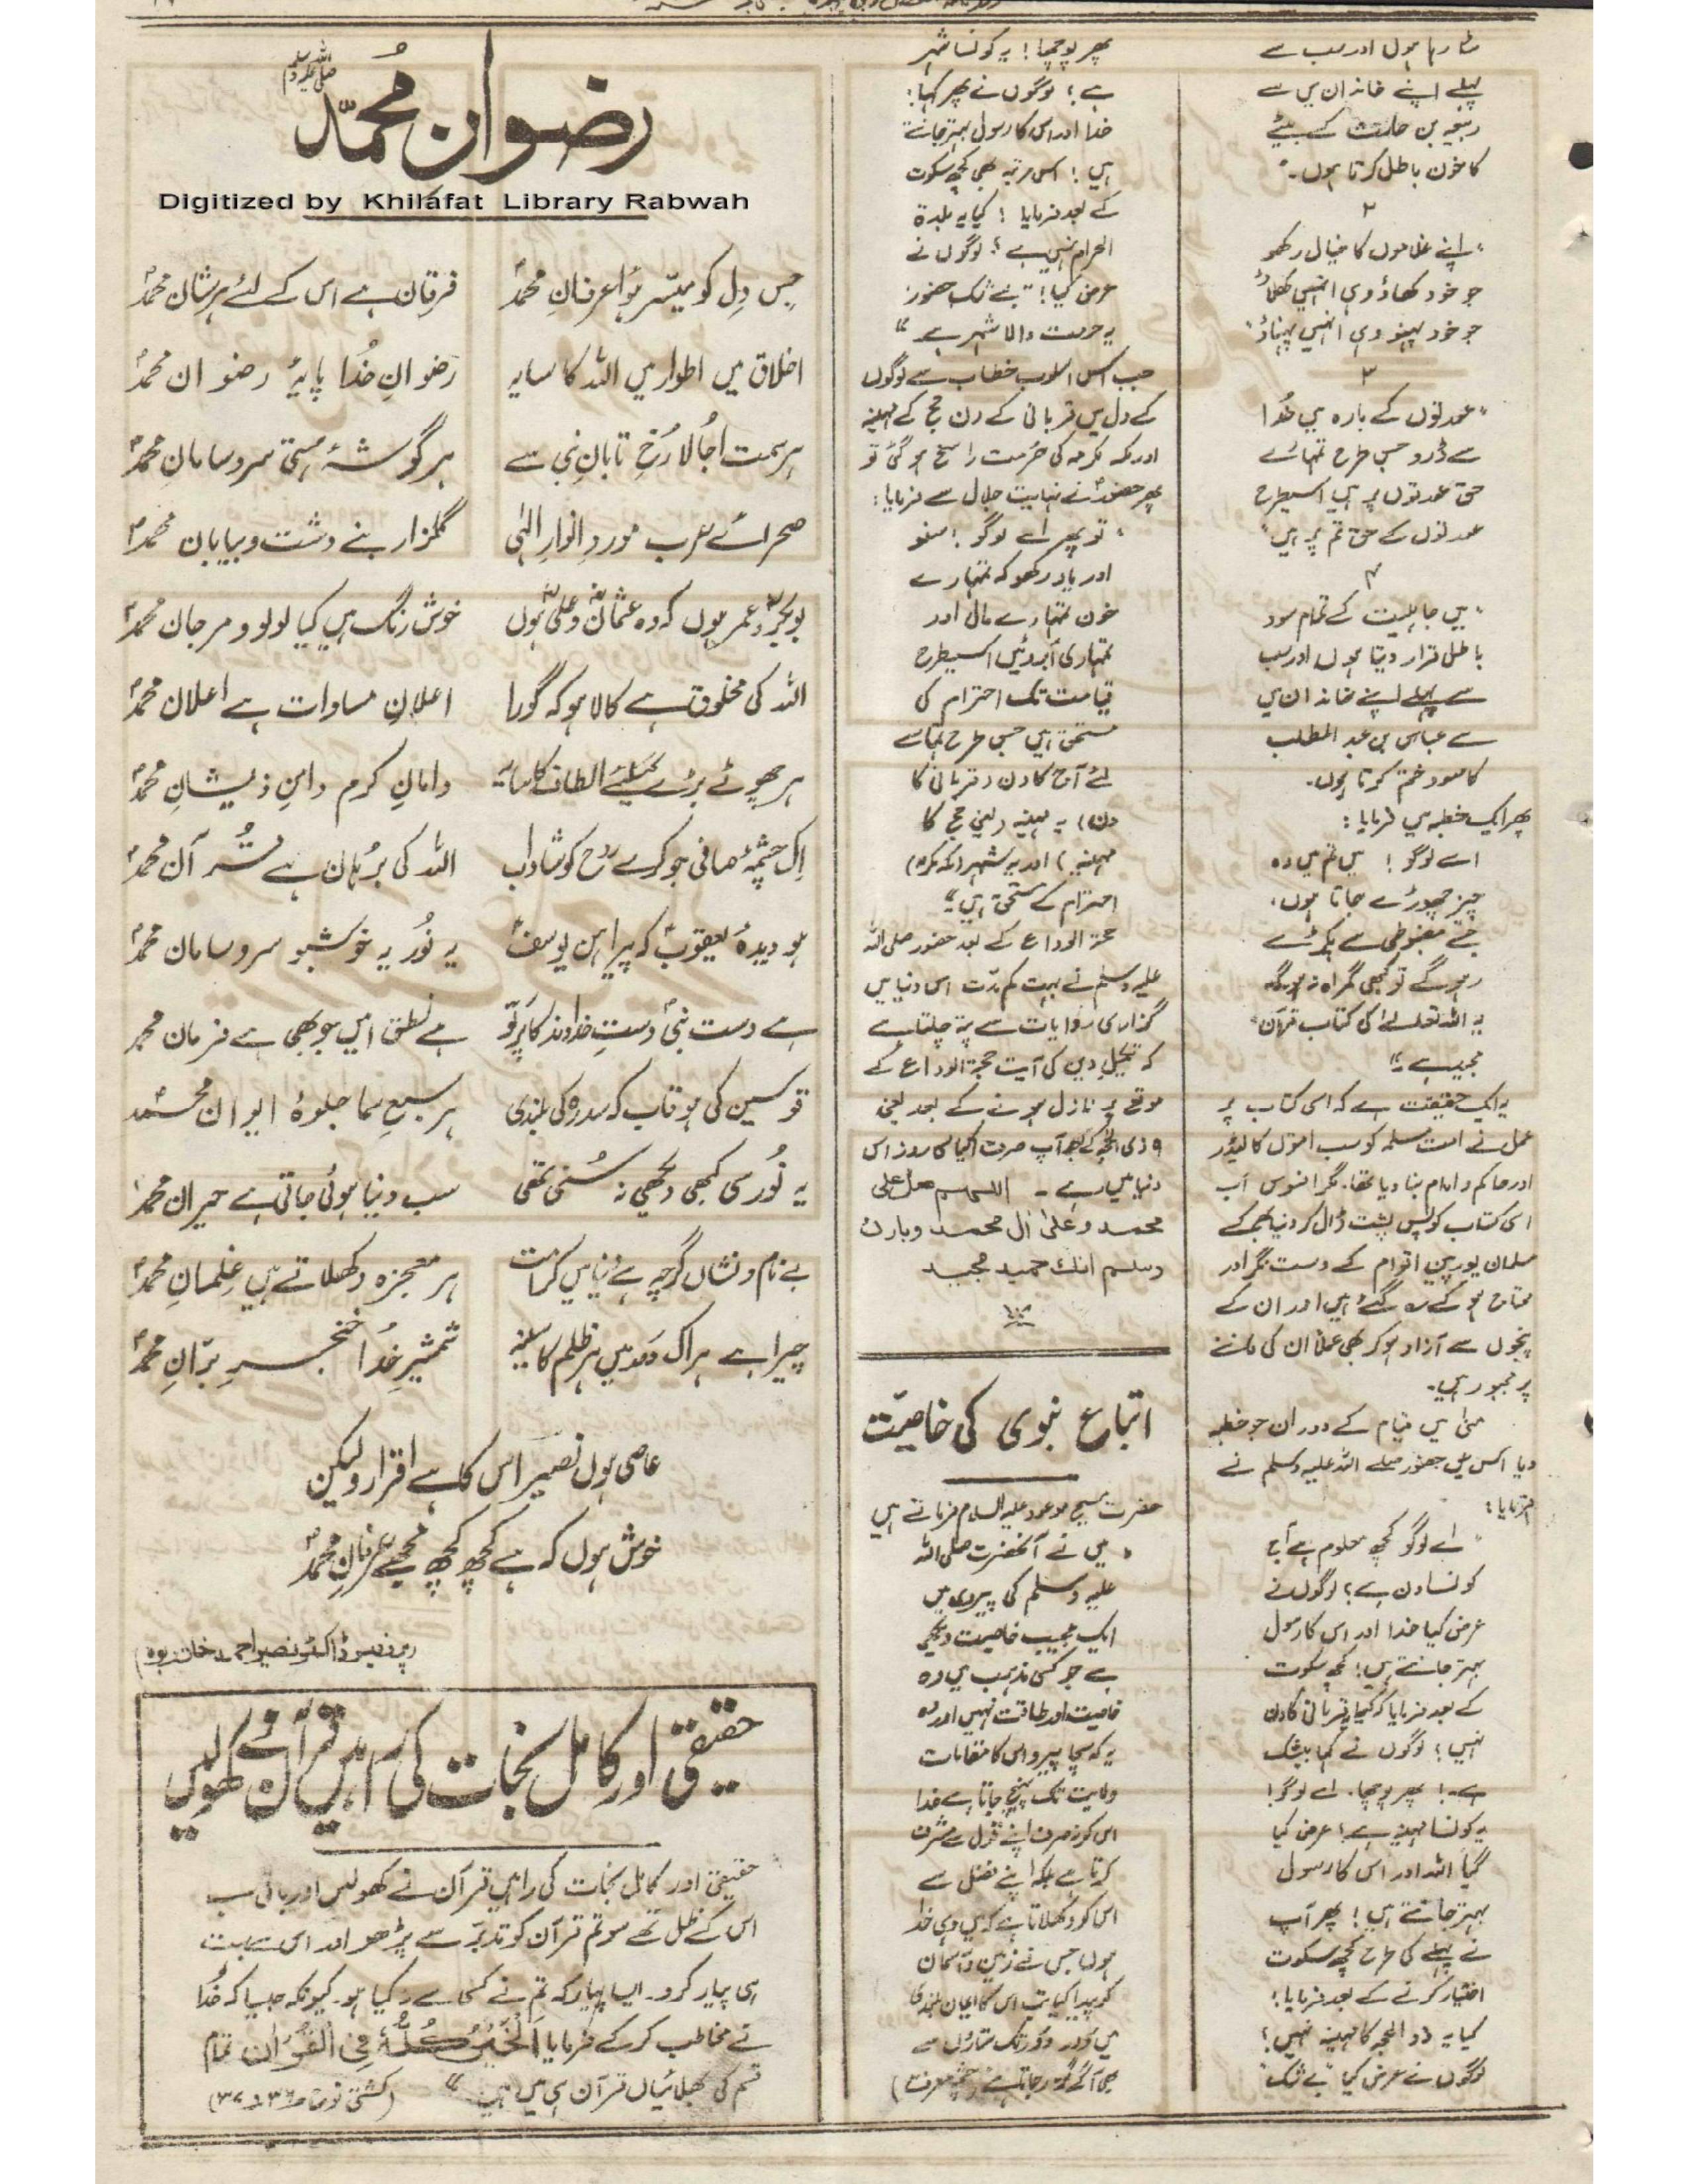 مٹا رہا ہوں اور سب سے
پہلے اپنے خاندان میں سے
ربیعہ بن حارث کے بیٹے
کا خون باطل کرتا ہوں۔"
۲
"اپنے غلاموں کا خیال رکھو
جو خود کھاؤ وہی انہیں کھلاؤ
جو خود پہنو وہی انہیں پہناؤ"
۳
"عورتوں کے بارہ میں خُدا
سے ڈرو جس طرح تمہارے
حق عورتوں پر ہیں اسیطرح
عورتوں کے حق تم پر ہیں"
۴
"میں جاہلیت کے تمام سود
باطل قرار دیتا ہوں اور سب
سے پہلے اپنے خاندان میں
سے عباس بن عبد المطلب
کا سود ختم کرتا ہوں۔
پھر ایک خطبہ میں فرمایا:
اے لوگو! میں تم میں وہ
چیز چھوڑے جاتا ہوں،
جسے مضبوطی سے پکڑے
رہو گے تو کبھی گمراہ نہ ہوگے
یہ اللہ تعالےٰ کی کتاب قرآن
مجید ہے۔"
یہ ایک حقیقت ہے کہ اسی کتاب پر
عمل نے امت مسلمہ کو سب اقوام کا لیڈر
اور حاکم و امام بنا دیا تھا۔ مگر افسوس اب
اسی کتاب کو پس پشت ڈال کر دنیا بھر کے
مسلمان یورپین اقوام کے دست نگر اور
محتاج ہو کے رہ گئے ہیں اور ان کے
پنجوں سے آزاد ہو کر بھی عملاً ان کی ماننے
پر مجبور ہیں۔
منیٰ میں قیام کے دوران جو خطبہ
دیا اس میں حضور صلے اللہ علیہ وسلم نے
فرمایا:
"اے لوگو کچھ معلوم ہے آج
کونسا دن ہے؟ لوگوں نے
عرض کیا خدا اور اس کا رسول
بہتر جانتے ہیں! کچھ سکوت
کے بعد فرمایا کہ کیا یہ قربانی کا دن
نہیں؟ لوگوں نے کہا بیشک
ہے! پھر پوچھا۔ اے لوگو!
یہ کونسا مہینہ ہے؟ عرض کیا
گیا اللہ اور اس کا رسول
بہتر جانتے ہیں! پھر آپ
نے پہلے کی طرح کچھ سکوت
اختیار کرنے کے بعد فرمایا؛
کیا یہ ذو الحجہ کا مہینہ نہیں؟
لوگوں نے عرض کیا "بے شک"
پھر پوچھا! یہ کونسا شہر
ہے؟ لوگوں نے پھر کہا:
خدا اور اس کا رسول بہتر جانتے
ہیں! اس مرتبہ بھی کچھ سکوت
کے بعد فرمایا! کیا یہ بلدۃ
الحرام نہیں ہے؟ لوگوں نے
عرض کیا! "بے شک حضور
یہ حرمت والا شہر ہے"
جب اس اسلوب خطاب سے لوگوں
کے دل میں قربانی کے دن حج کے مہینہ
اور مکہ مکرمہ کی حُرمت راسخ ہو گئی تو
پھر حضورؐ نے نہایت جلال سے فرمایا:
"تو پھر اے لوگو! سنو
اور یاد رکھو کہ تمہارے
خون تمہارے مال اور
تمہاری آبروئیں اسیطرح
قیامت تک احترام کی
مستحق ہیں جس طرح تمہارے
لئے آج کا دن (قربانی کا
دن) یہ مہینہ (یعنی حج کا
مہینہ) اور یہ شہر (مکہ مکرمہ)
احترام کے مستحق ہیں"
حجۃ الوداع کے بعد حضور صلی اللہ
علیہ وسلم نے بہت کم مدّت اس دنیا میں
گذاری روایات سے پتہ چلتا ہے
کہ تکمیلِ دین کی آیت حجۃ الوداع کے
موقع پر نازل ہونے کے بعد یعنی
۹ ذی الحجہ کے بعد آپ صرف اکیاسی روز اس
دنیا میں رہے۔ اللہم صل علی
محمد وعلیٰ اٰل محمد وبارک
وسلم انك حمید مجید
اتباع نبوی کی خاصیّت
حضرت مسیح موعود علیہ السلام فرماتے ہیں
"میں نے آنحضرت صلی اللہ
علیہ وسلم کی پیروی میں
ایک عجیب خاصیت دیکھی
ہے جو کسی مذہب میں وہ
خاصیت اور طاقت نہیں اور وہ
یہ کہ سچا پیرو اس کا مقامات
ولایت تک پہنچ جاتا ہے خدا
اس کو نہ صرف اپنے قول سے مشرف
کرتا ہے بلکہ اپنے فضل سے
اس کو دکھلاتا ہے کہ میں وہی خدا
ہوں جس نے زمین و آسمان
کو پیدا کیا تب اس کا ایمان بلندی
میں دُور دُور تک ستاروں سے
بھی آگے گذر جاتا ہے" (چشمہ معرفت)
رضوانِ مُحمّدؐ
صلی اللہ علیہ وسلم
Digitized by Khilafat Library Rabwah
جس دِل کو میسّر ہُوا عرفانِ محمدؐ فرقان ہے اس کے لئے ہر شان محمدؐ
اخلاق میں اطوار میں اللہ کا سایہ رضوانِ خُدا پایۂ رضوان محمدؐ
ہر سمت اُجالا رُخِ تابانِ نبی سے ہر گوشۂ ہستی سر و سامان محمدؐ
صحرائے عرب موردِ انوارِ الٰہی گلزار بنے دشت و بیابان محمدؐ
بوبکرؓ و عمر ہوں کہ وہ عثمانؓ و علیؓ ہوں خوش رنگ ہیں کیا لولو و مرجان محمدؐ
اللہ کی مخلوق ہے کالا ہو کہ گورا اعلانِ مساوات ہے اعلان محمدؐ
ہر چھوٹے بڑے کیلئے الطاف کا سایہ دامانِ کرم دامنِ ذیشانِ محمدؐ
اِک چشمۂ صافی جو کرے روح کو شاداب اللہ کی بُرہان ہے قُرآن محمدؐ
ہو دیدۂ یعقوبؑ کہ پیراہن یوسفؑ یہ نُور یہ خوشبو سر و سامان محمدؐ
ہے دست نبیؐ دستِ خداوند کا پرتو ہے نطق امیں جو بھی ہے فرمان محمدؐ
قوسین کی ہو قاب کہ سدرہ کی بلندی ہر سبعِ سما جلوۂ ایوان محمدؐ
یہ نُور سی کبھی دیکھی نہ سُنی تھی سب دنیا ہوئی جاتی ہے حیران محمدؐ
بے نام و نشاں گرچہ ہے دُنیا میں کرامت ہر معجزہ دکھلاتے ہیں غِلمانِ محمدؐ
چیرا ہے ہر اک دَور میں ہر ظلم کا سینہ شمشیرِ خُدا خنجرِ برّانِ محمدؐ
عاصی ہوں نصیر اس کا ہے اقرار و لیکن
خوش ہوں کہ ہے کچھ کچھ مجھے عرفانِ محمدؐ
(پروفیسر ڈاکٹر نصیر احمد خان ربوہ)
حقیقی اور کامل نجات کی راہیں قرآن نے کھولیں
حقیقی اور کامل نجات کی راہیں قرآن نے کھولیں اور باقی سب
اس کے ظل تھے سو تم قرآن کو تدبّر سے پڑھو اور اس سے بہت
ہی پیار کرو۔ ایسا پیار کہ تم نے کسی سے نہ کیا ہو۔ کیونکہ جیسا کہ خُدا
نے مخاطب کر کے فرمایا اَلْخَيْرُ كُلُّهٗ فِی الْقُرْاٰن تمام
قسم کی بھلائیاں قرآن ہی میں ہیں" (کشتی نوح